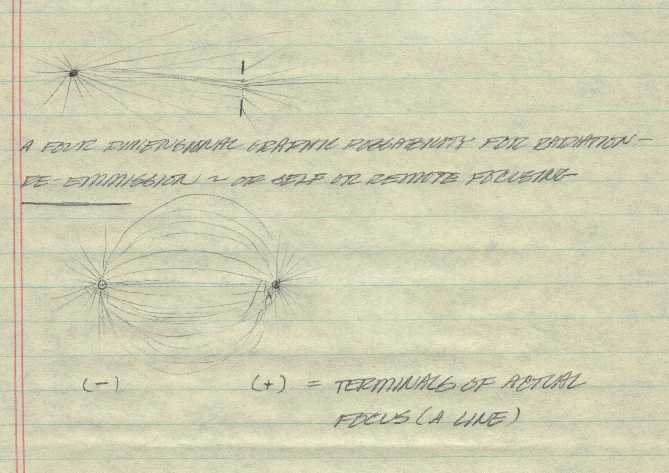 A FOUR DIMENSIONAL GRAPHIC POSSABILITY FOR RADIATION—
RE-EMMISSION ~ OR SELF OR REMOTE FOCUSING
(-) (+) = TERMINALS OF ACTUAL
FOCUS (A LINE)